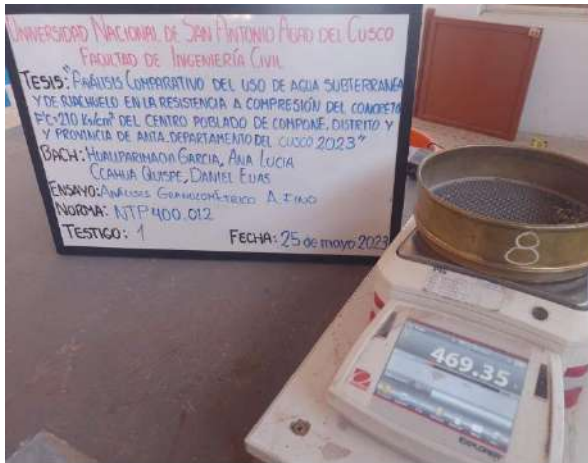 UNIVERSIDAD NACIONAL DE SAN ANTONIO ABAD DEL CUSCO
FACULTAD DE INGENIERÍA CIVIL
TESIS: "ANÁLISIS COMPARATIVO DEL USO DE AGUA SUBTERRANEA
Y DE RIACHUELO EN LA RESISTENCIA A COMPRESIÓN DEL CONCRETO
F'C=210 Kg/cm² DEL CENTRO POBLADO DE COMPONE, DISTRITO Y
Y PROVINCIA DE ANTA, DEPARTAMENTO DEL CUSCO 2023"
BACH: HUALLPARIMACHI GARCIA, ANA LUCIA
CCAHUA QUISPE, DANIEL ELIAS
ENSAYO: ANÁLISIS GRANULOMÉTRICO A. FINO
NORMA: NTP 400.012
TESTIGO: 1 FECHA: 25 de mayo 2023
8
469.35
EXPLORER